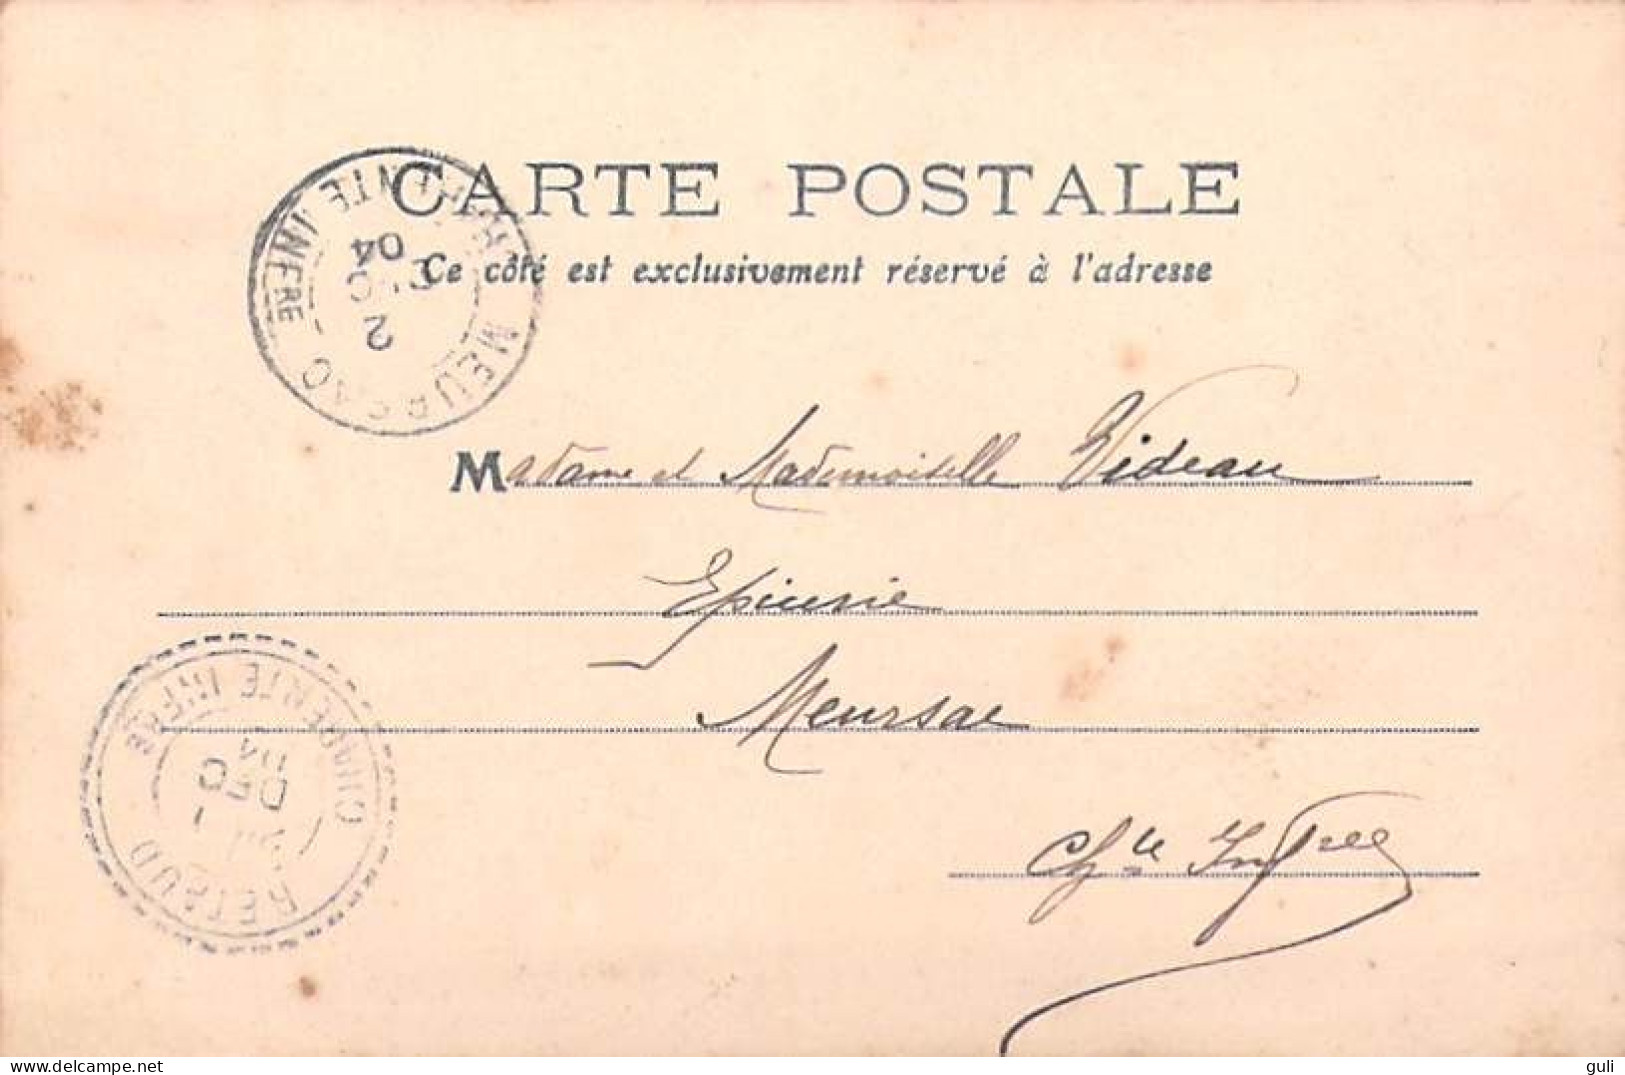 CARTE POSTALE
Ce côté est exclusivement réservé à l'adresse
MEURSAC
CHARENTE INFRE
2
DEC
04
Madame et Mademoiselle Videau
Epicerie
Meursac
Chte Infre
RETAUD
CHARENTE INFRE
1
DEC
04
guli
www.delcampe.net